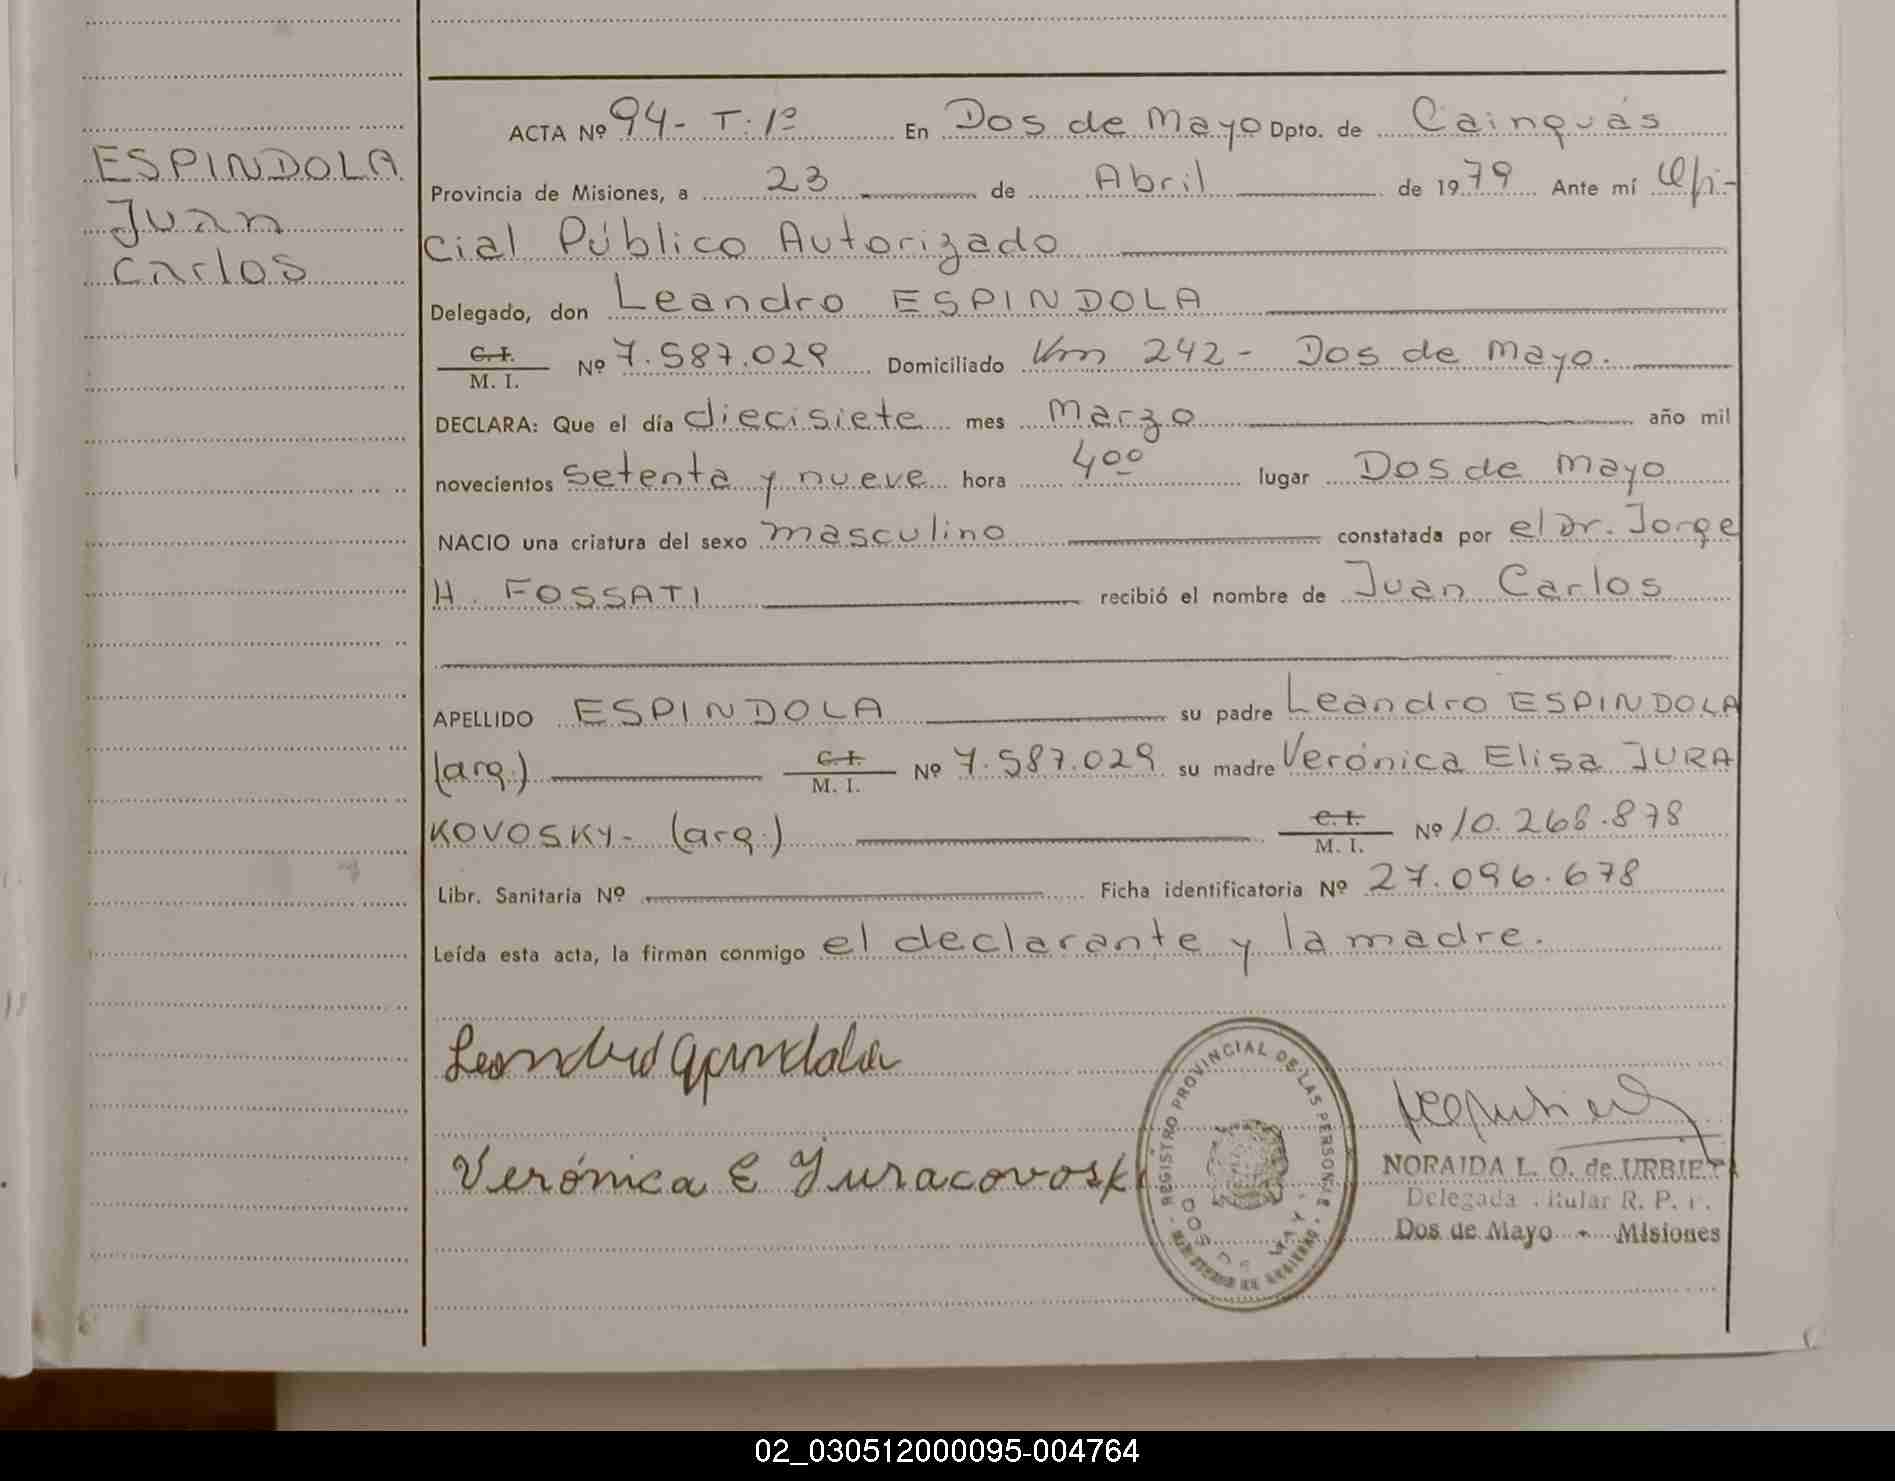 ESPINDOLA
Juan
Carlos
ACTA Nº 94- T. 1º En Dos de Mayo Dpto. de Cainguás
Provincia de Misiones, a 23 de Abril de 1979 Ante mí Ofi-
cial Público Autorizado
Delegado, don Leandro ESPINDOLA
C. I.
M. I. Nº 7.587.029 Domiciliado Km 242 - Dos de Mayo.
DECLARA: Que el día diecisiete mes Marzo año mil
novecientos setenta y nueve hora 4 00 lugar Dos de Mayo
NACIO una criatura del sexo masculino constatada por el Dr. Jorge
H. FOSSATI recibió el nombre de Juan Carlos
APELLIDO ESPINDOLA su padre Leandro ESPINDOLA
(arg.) C. I. M. I. Nº 7.587.029 su madre Verónica Elisa JURA
KOVOSKY- (arg.) C. I. M. I. Nº 10.268.878
Libr. Sanitaria Nº Ficha identificatoria Nº 27.096.678
Leída esta acta, la firman conmigo el declarante y la madre.
Leandro Espindola
Verónica E Juracovoski
REGISTRO PROVINCIAL DE LAS PERSONAS
DOS DE MAYO
MINISTERIO DE GOBIERNO
NORAIDA L. O. de URBIET
Delegada Titular R. P. P.
Dos de Mayo - Misiones
02_030512000095-004764